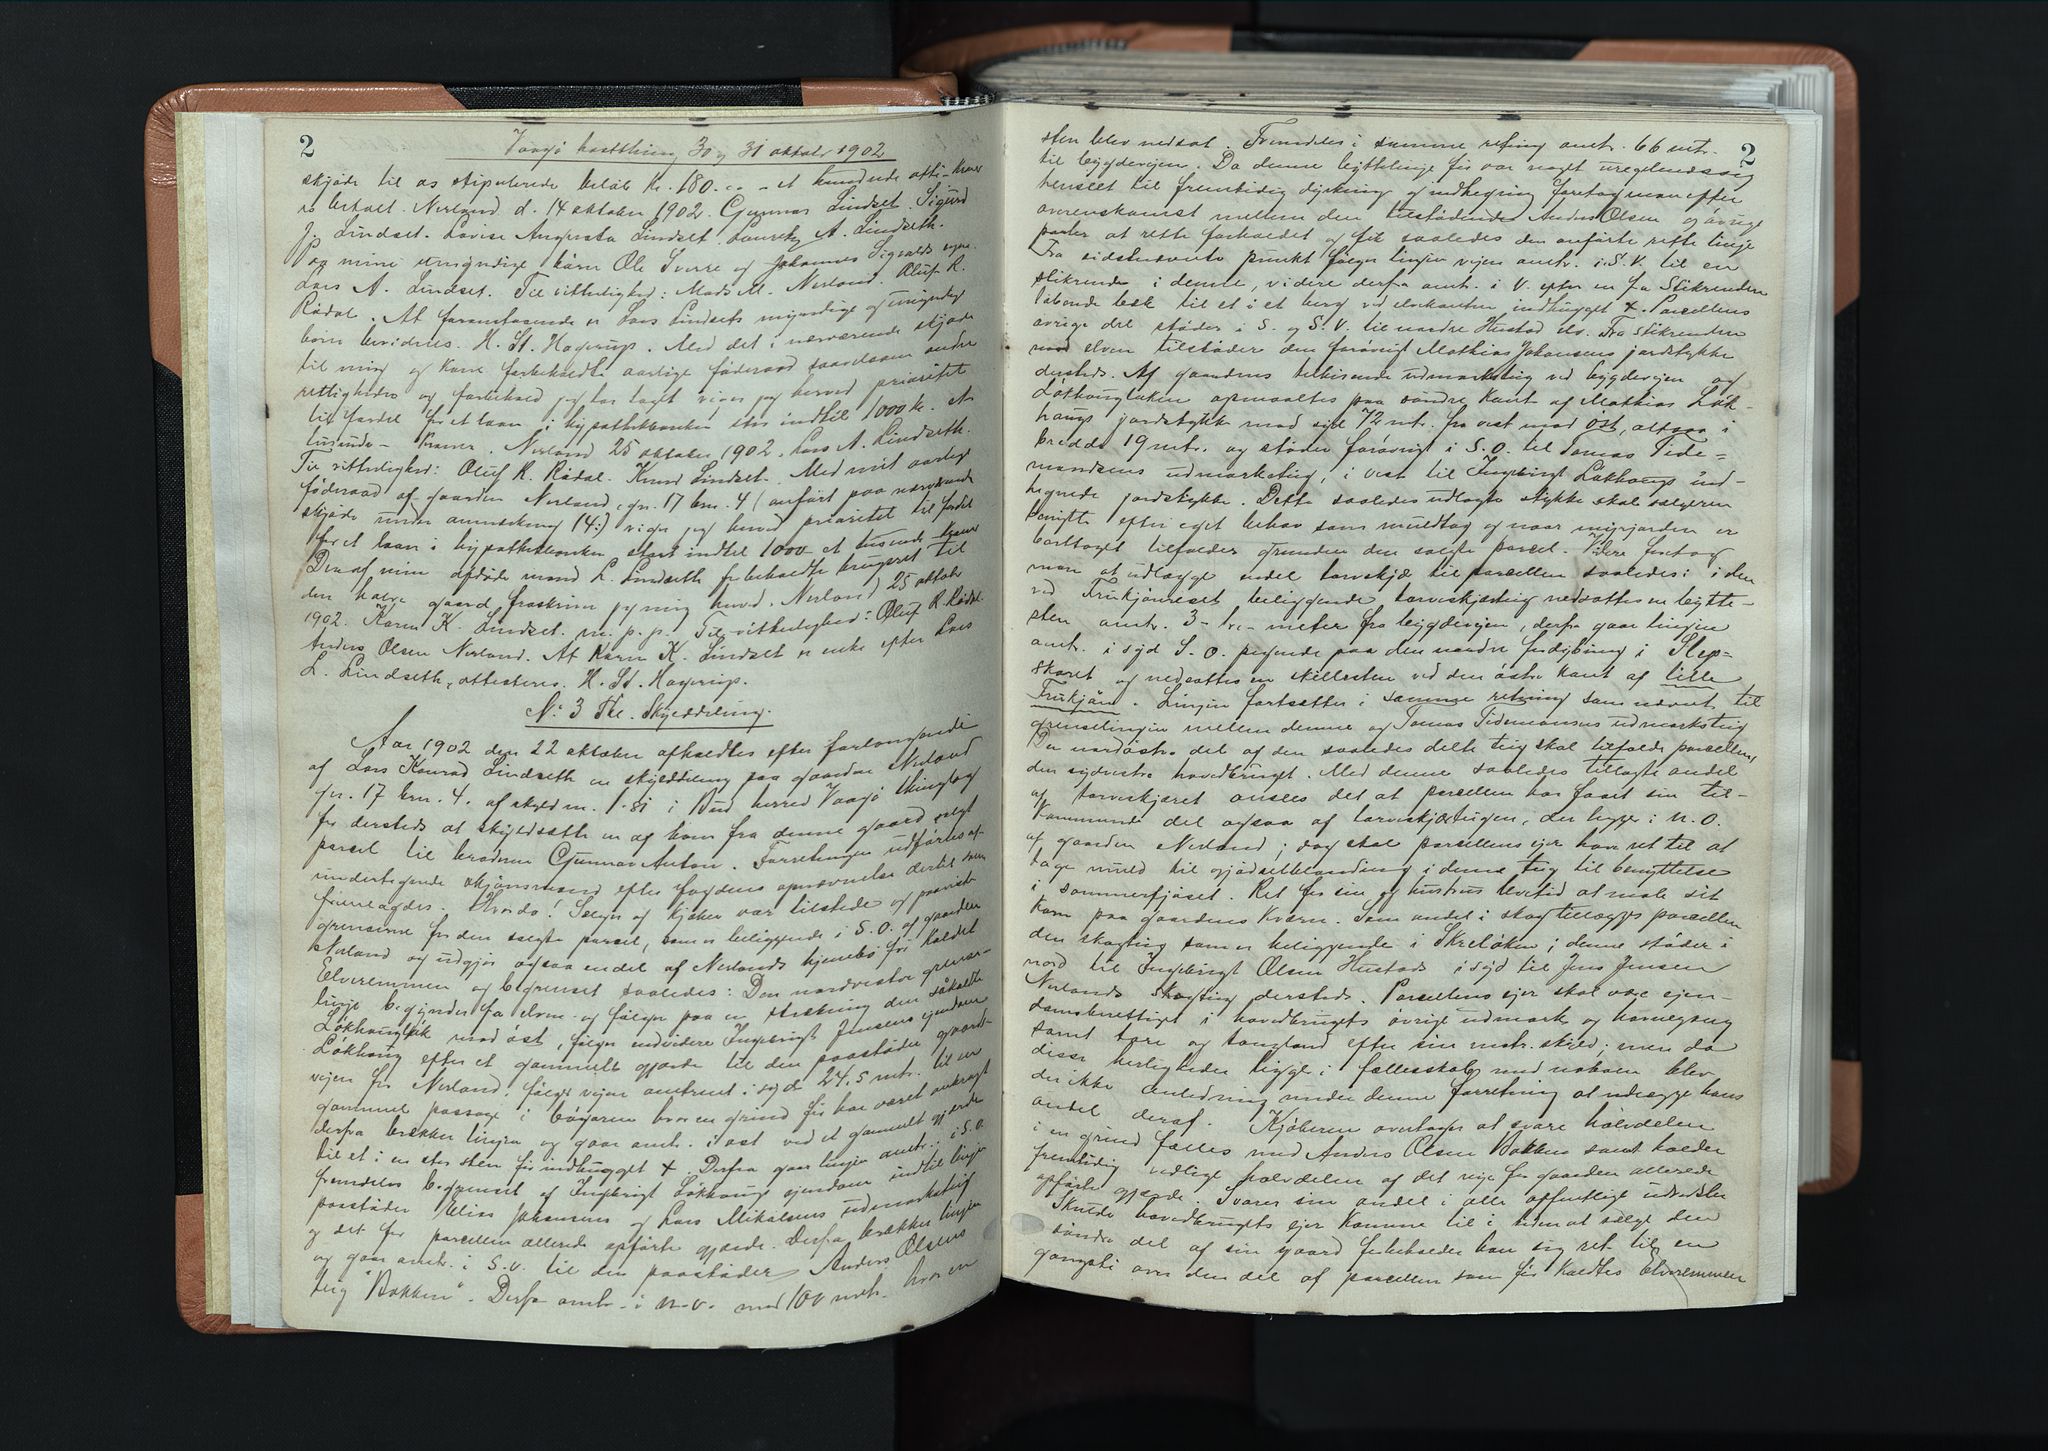 2
Vaagø høstthing 30 og 31 oktober 1902
skjøde til os stipulerede beløb Kr. 180.00 - et hundrede otti - Kroner
er betalt. Nerland d. 14 oktober 1902. Gunnar Lindset. Sigurd
J. Lindset. Lovise Augusta Lindset. A. Lindseth.
Paa mine umyndige børn Ole Sverre og Johannes Sigvalds vegne
Lars A. Lindset. Til vitterlighed: Mads M. Nerland. Oluf R.
Rødal. At foranstaaende er Lars Lindsets myndige og umyndige
børn bevidnes. H. St. Hagerup. Med det i nærværende skjøde
til mig og Kone forbeholdte aarlige føderaad saavelsom andre
rettigheder og forbehold jeg har taget viger jeg herved prioritet
til fordel for et laan i hypothekbanken stor indtil 1000 kr. et
tusinde - Kroner. Nerland 25 oktober 1902. Lars A. Lindseth.
Til vitterlighed: Oluf R. Rødal. Knud Lindset. Med mit aarlige
føderaad af gaarden Nerland, gn. 17 brn. 4 (anført paa nærværende
skjøde under anmerkning (4:) viger jeg herved prioritet til fordel
for et laan i hypothekbanken stort indtil 1000 et tusinde Kroner
Den af min afdøde mand L. Lindseth forbeholdte brugsret til
den halve gaard fraskriver jeg mig herved. Nerland 25 oktober
1902. Karen K. Lindset. m. p. p. Til vitterlighed: Oluf R. Rødal.
Anders Olsen Nerland. At Karen K. Lindset er enke efter Lars
L. Lindseth, attesteres. H. St. Hagerup.
No 3 Thl. Skylddeling.
Aar 1902 den 22 oktober afholdtes efter forlangende
af Lars Konrad Lindseth en skylddeling paa gaarden Nerland
gn. 17 brn. 4. af skyld m. 1.81 i Bud herred Vaagø thinglag
for dersteds at skyldsætte en af ham fra denne gaard solgt
parcel til broderen Gunnar Anton. Forretningen udførtes af
undertegnede skjønsmænd efter fogdens opnævnelse dertil som
fremlagdes. Hvorda! Sælger og kjøber var tilstede og paaviste
grenserne for den solgte parcel, som er beliggende i S.O. af gaarden
Nerland og udgjør ogsaa endel af Nerlands hjemebø før kaldet
Elveremmen og begrenset saaledes: Den nordvestre grense-
linje begynder fra elven og følger paa en strækning den såkaldte
Løkhougbæk mod øst, følger endvidere Ingebrigt Jensens eiendom
Løkhoug efter et gammelt gjærde til den paastøder gaards-
vejen for Nerland, følger vejen omtrent i syd 24,5 mtr. til en
gammel passage i bøgaren hvor en grind før har været anbragt
derfra brækker linjen og gaar omtr. i øst ved et gammelt gjærde
til et i en stor sten før indhugget +. Derfra gaar linjen omtr. i S.O.
fremdeles begrenset af Ingebrigt Løkhougs eiendom indtil linjen
paastøder Elias Johansens og Lars Mikalsens udmarksteig
og det for parcellen allerede opførte gjærde. Derfra brækker linjen
og gaar omtr. i S.V. til den paastøder Anders Olsens
teig "Bakken". Derfra omtr. i N.V. med 100 mtr. hvor en
2
sten blev nedsat. Fremdeles i samme retning omtr. 66 mtr.
til bygdevejen. Da denne byttelinje før var noget uregelmæssig
henseet til fremtidig dyrkning og indhegning foretog man efter
overenskomst mellem den tilstedende Anders Olsen og øvrige
parter at rette forholdet og fik saaledes den anførte rette linje
Fra sidstnævnte punkt følger linjen vejen omtr. i S.V. til en
stikrende i denne, videre derfra omtr. i V. efter en fra Stikrenden
løbende bæk til et i et berg ved elvekanten indhugget +. Parcellens
øvrige del støder i S. og S.V. til nordre Hustad elv. Fra Stikrenden
mod elven tilstøder den forøvrigt Mathias Johansens jordstykke
dersteds. Af gaardens tilhørende udmarksteig ved bygdevejen og
Løkhougløken opmaaltes paa søndre kant af Mathias Løk-
hougs jordstykke mod syd 72 mtr. fra vest mod øst, altsaa i
bredde 19 mtr. og støder forøvrigt i S.O. til Tomas Tide=
mandsens udmarksteig, i vest til Ingebrigt Løkhougs ind-
hegnede jordstykke. Dette saaledes udlagte stykke skal sælgeren
benytte efter eget behov som muldtag og naar myrjorden er
borttaget tilfalder grunden den solgte parcel. Videre foretog
man at udlægge endel torvskjæ til parcellen saaledes: i den
ved Frukjønneset beliggende torveskjæteig nedsattes en bytte-
sten omtr. 3 - tre - meter fra bygdevejen, derfra gaar linjen
omtr. i syd S.O. pegende paa den nordre fordybning i Slep-
skaret og nedsattes en skillesten ved den østre kant af lille
Frukjøn. Linjen fortsætter i samme retning som nævnt til
grenselinjen mellem denne og Tomas Tidemansens udmarksteig
Den nordøstre del af den saaledes delte teig skal tilfalde parcellen,
den sydvestre hovedbruget. Med denne saaledes tillagte andel
af torveskjæret ansees det at parcellen har faaet sin til-
kommende del ogsaa af torveskjæteigen, der ligger i N.O.
af gaarden Nerland; dog skal parcellens ejer have ret til at
tage muld til gjødselblanding i denne teig til benyttelse
i sommerfjøset. Ret for sin og hustrus levetid at male sit
korn paa gaardens kværn. Som andel i skog tillægges parcellen
den skogteig som er beliggende i Skreløken; denne støder i
nord til Ingebrigt Olsen Hustads i syd til Jens Jensen
Nerlands skogteig dersteds. Parcellens ejer skal være ejen-
domsberettiget i hovedbrugets øvrige udmark og havnegang
samt tare og tangland efter sin matr. skyld; men da
disse herligheder ligger i fællesskab med naboen blev
der ikke anledning under denne forretning at udlægge hans
andel deraf. Kjøberen overtager at svare halvdelen
i en grind fælles med Anders Olsen Bakken samt holder
fremtidig vedlige halvdelen af det veje for gaarden allerede
opførte gjærde. Svarer sin andel i alle offentlige udredsler
Skulde hovedbrugets ejer komme til i tiden at sælge den
søndre del af sin gaard forbeholder han sig ret til en
gangsti over den del af parcellen som før kaldtes Elveremmen